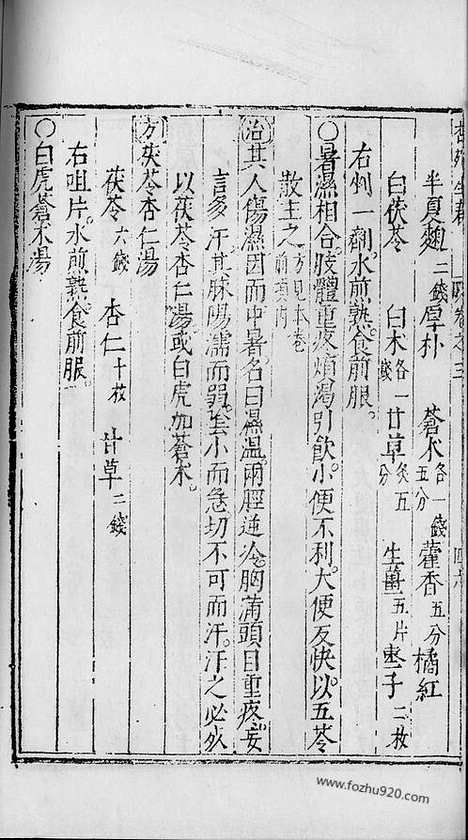 半夏麯二錢厚朴　蒼朮各一錢五分藿香五分橘紅
白茯苓　白朮各一錢甘草炙五分　生薑五片枣子二枚
右剉一劑水煎熟食前服。
〇暑濕相合肢體重疼煩渴引飲小便不利大便反快以五苓
散主之方見本卷前頁內
治其人傷濕因而中暑名曰濕溫兩脛逆冷胸滿頭目重疼妄
言多汗其脉陽濡而弱陰小而急切不可而汗汗之必死
以茯苓杏仁湯或白虎加蒼朮。
方茯苓杏仁湯
茯苓六錢　杏仁十枚　甘草二錢
右咀片。水煎熟食前服。
〇白虎蒼朮湯
www.fozhu920.com